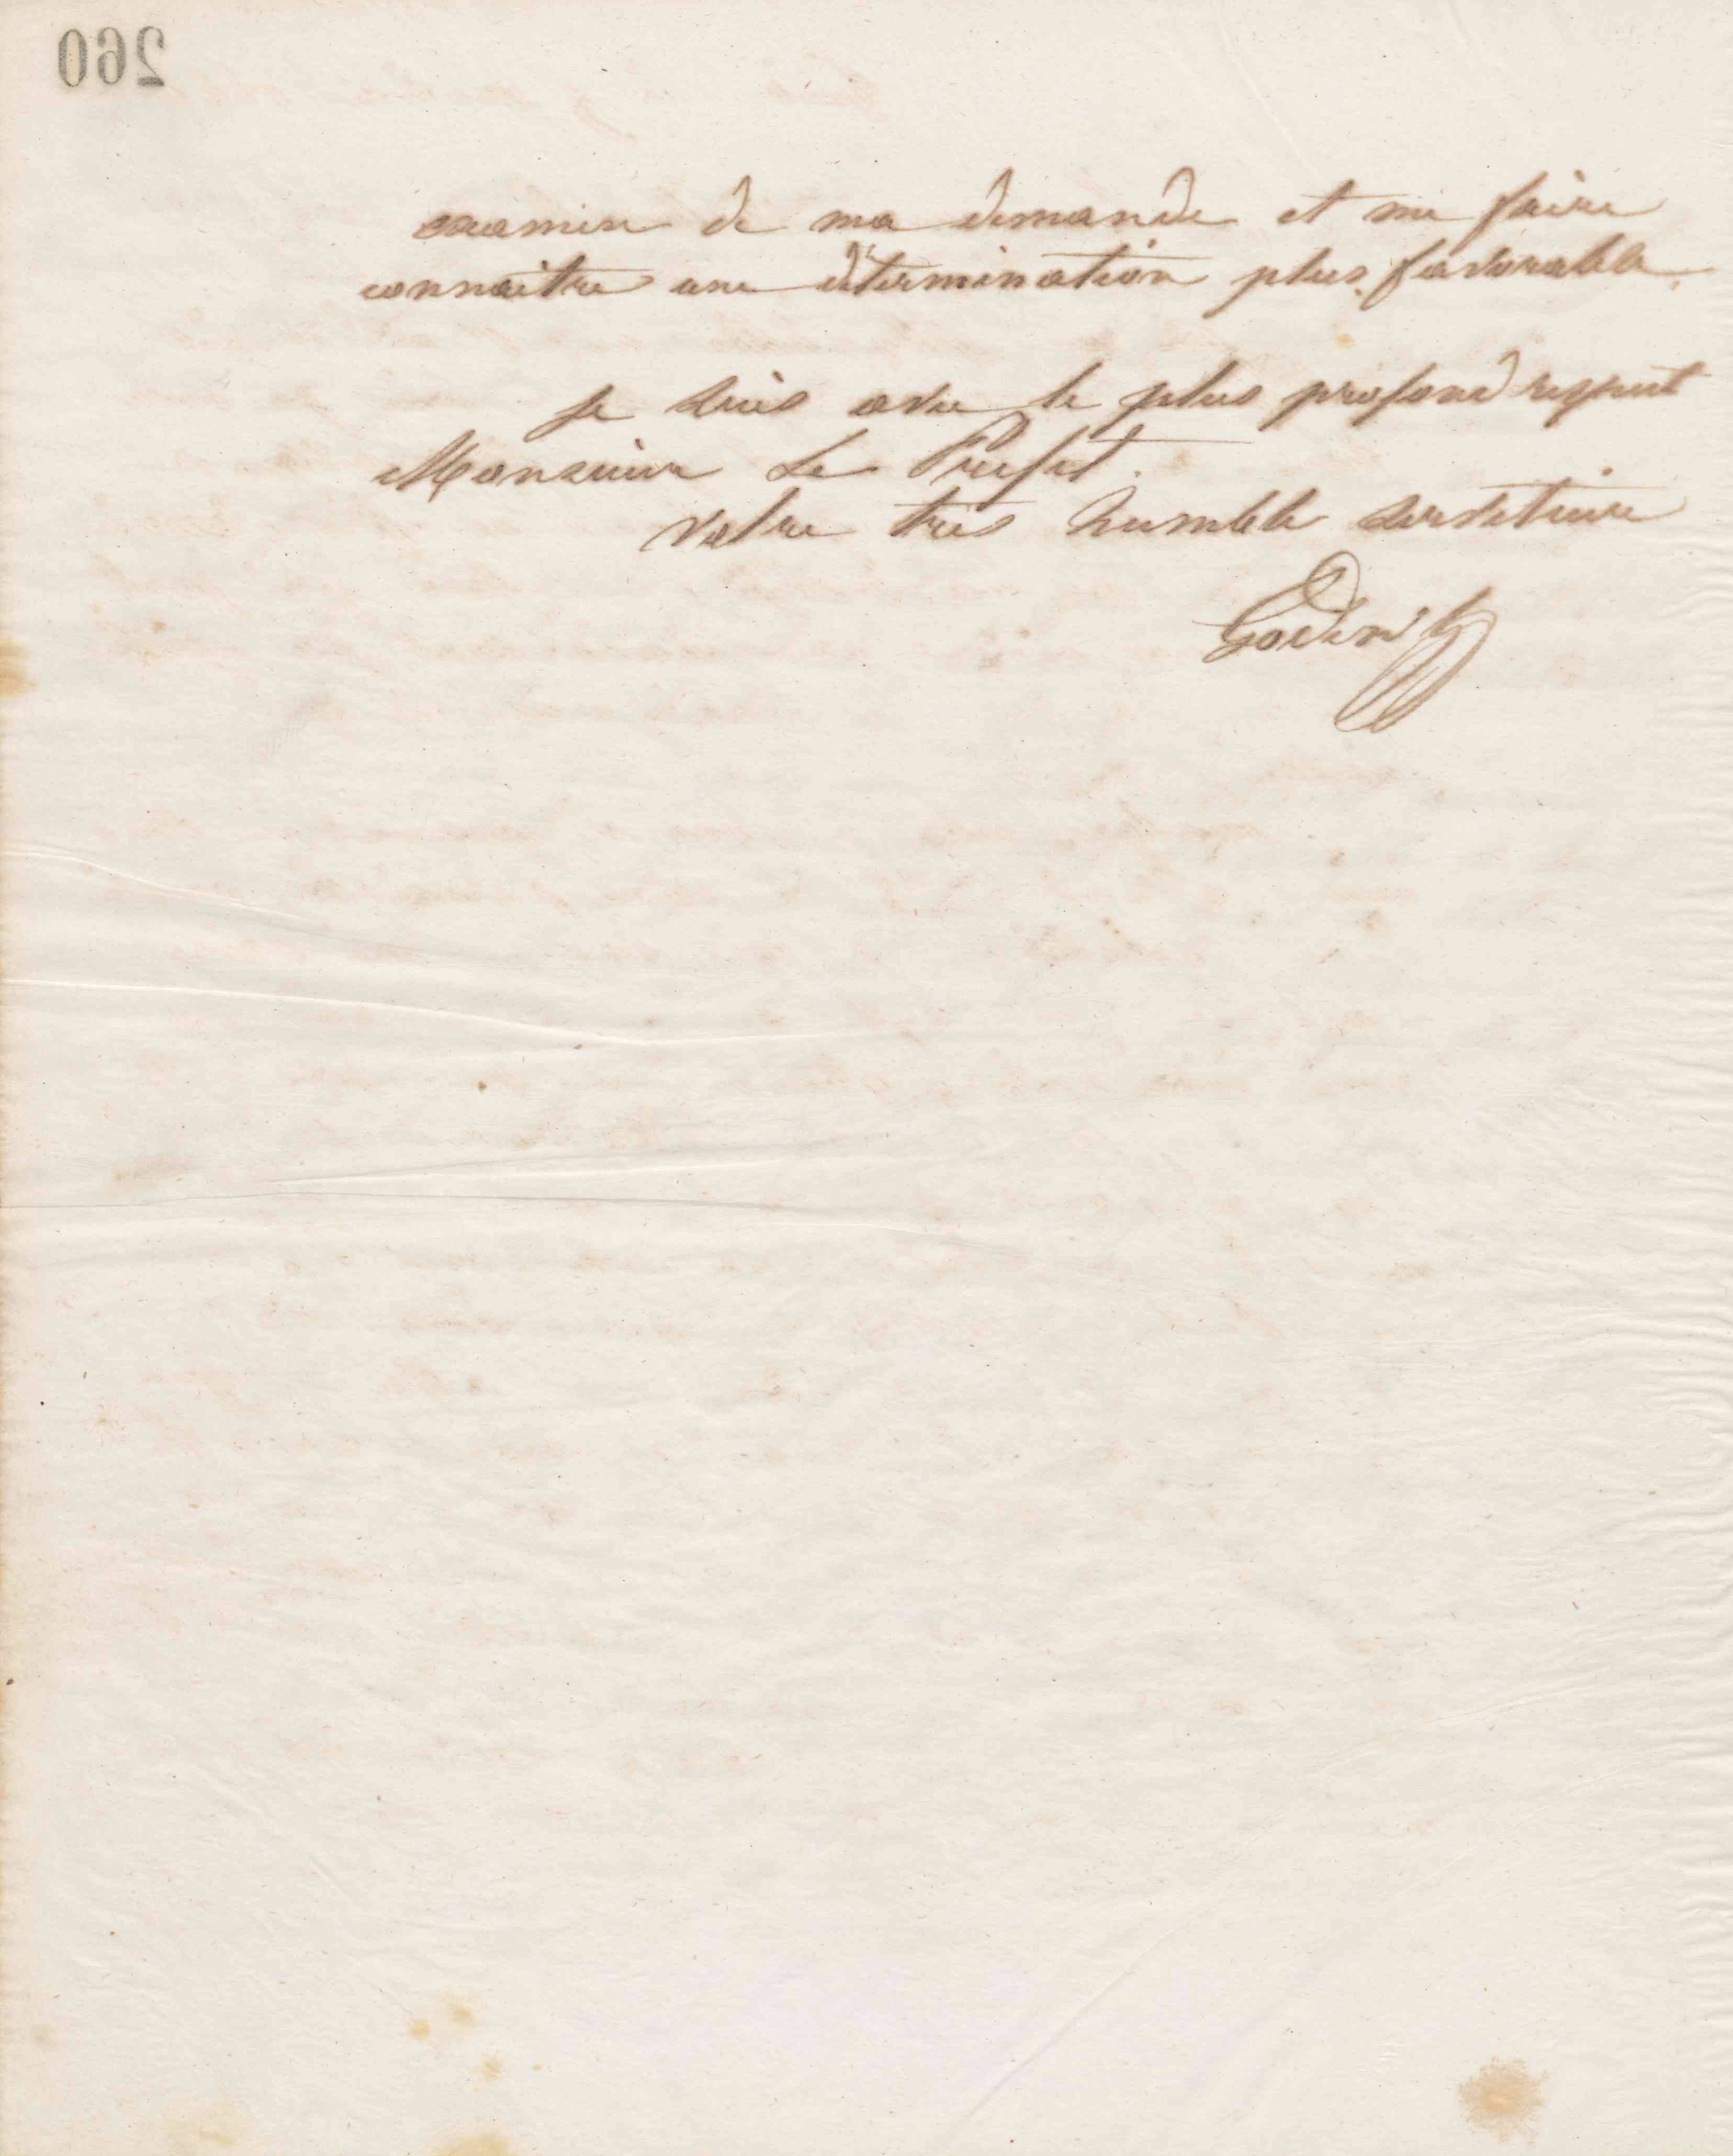 260
examen de ma demande et me faire
connaitre une détermination plus favorable.
Je suis avec le plus profond respect
Monsieur Le Préfet.
Votre très humble serviteur
Godin